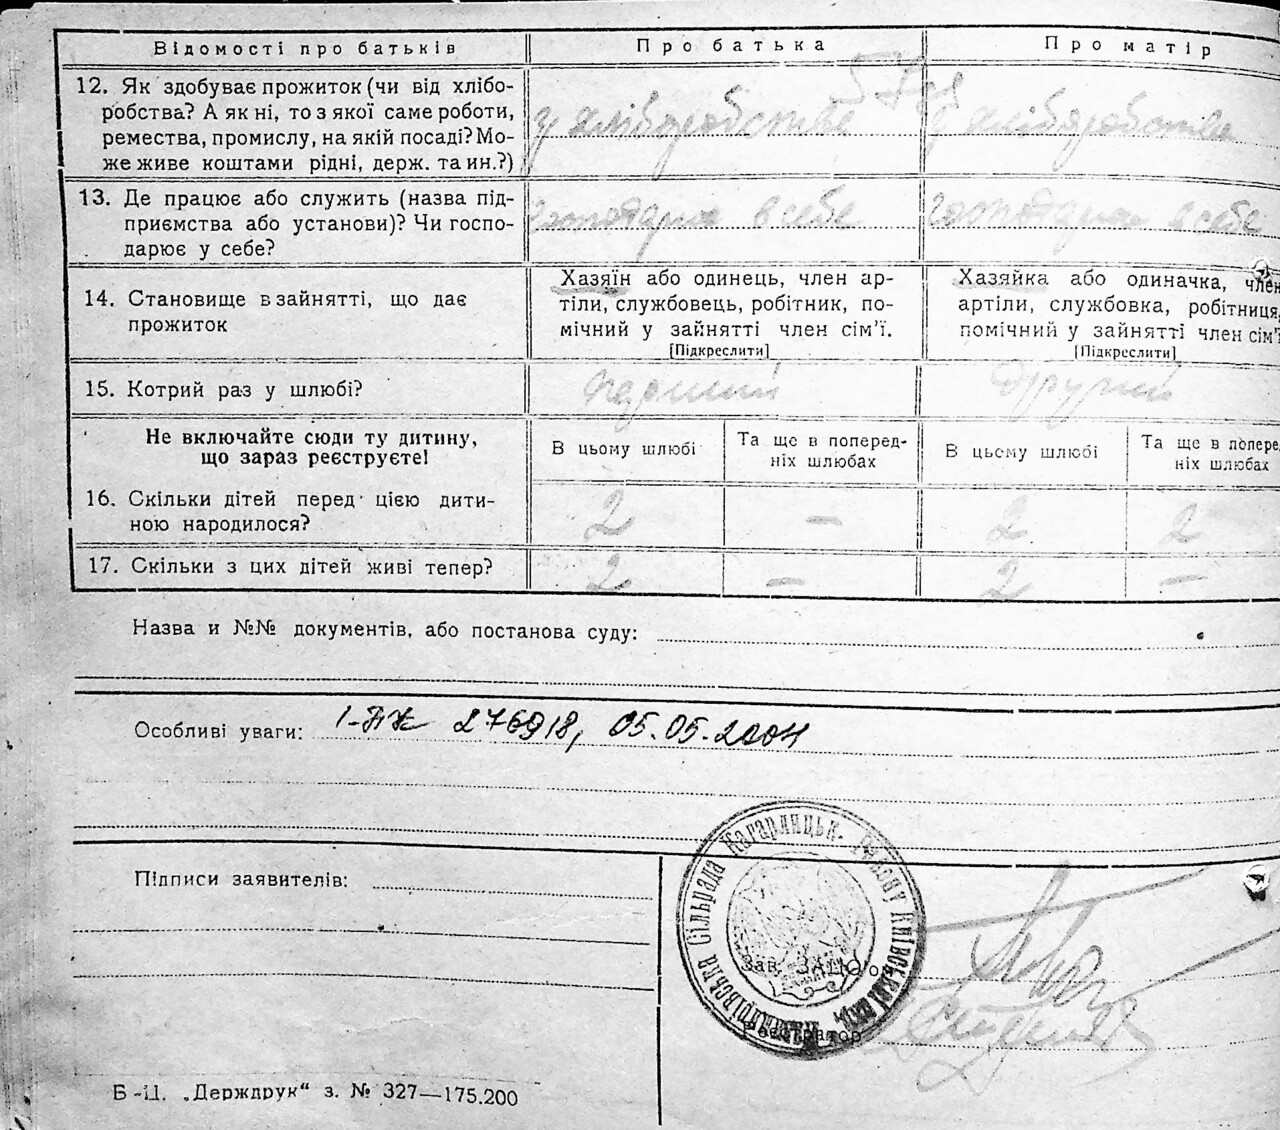 Відомості про батьків
Про батька
Про матір
12. Як здобуває прожиток (чи від хлібо-
робства? А як ні, то з якої саме роботи,
ремества, промислу, на якій посаді? Мо-
же живе коштами рідні, держ. та ин.?)
у хліборобстве
у хліборобстве
13. Де працює або служить (назва під-
приємства або установи)? Чи госпо-
дарює у себе?
господарює в себе
господарює в себе
14. Становище в зайнятті, що дає
прожиток
Хазяїн або одинець, член ар-
тіли, службовець, робітник, по-
мічний у зайнятті член сім'ї.
[Підкреслити]
Хазяйка або одиначка, член
артіли, службовка, робітниця,
помічний у зайнятті член сім'ї
[Підкреслити]
15. Котрий раз у шлюбі?
перший
другий
Не включайте сюди ту дитину,
що зараз реєструєте!
В цьому шлюбі
Та ще в поперед-
ніх шлюбах
В цьому шлюбі
Та ще в попере
ніх шлюбах
16. Скільки дітей перед цією дити-
ною народилося?
2 — 2 2
17. Скільки з цих дітей живі тепер?
2 — 2 —
Назва и №№ документів, або постанова суду:
Особливі уваги: І-ПК 276918, 05.05.2004
Підписи заявителів:
сільрада Кагарлицьк. Району Київської
Зав. ЗАЦЮ
Реєстратор
Б-Ц. „Держдрук“ з. № 327—175.200